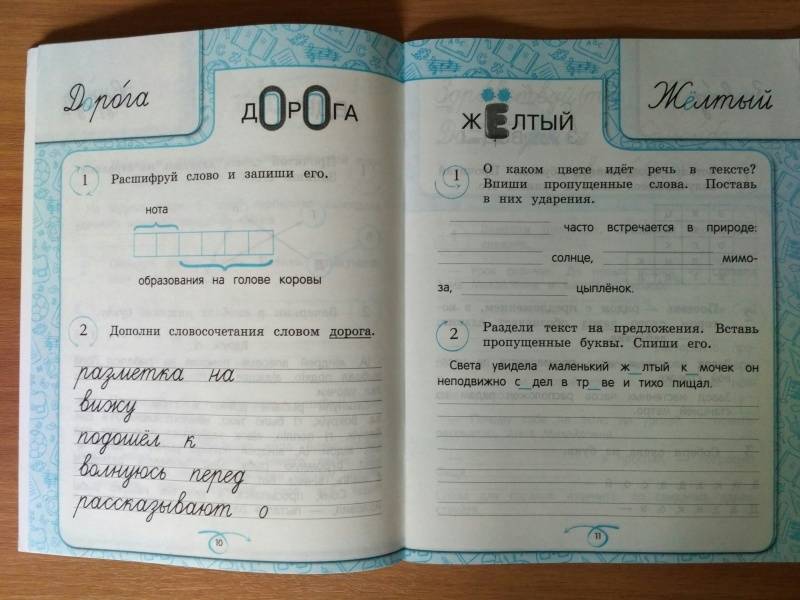 Доро́га
ДОРОГА
1 Расшифруй слово и запиши его.
нота
образования на голове коровы
2 Дополни словосочетания словом дорога.
разметка на
вижу
подошёл к
волнуюсь перед
рассказывают о
10
Жёлтый
ЖЁЛТЫЙ
1 О каком цвете идёт речь в тексте?
Впиши пропущенные слова. Поставь
в них ударения.
____ часто встречается в природе:
____ солнце, ____ мимо-
за, ____ цыплёнок.
2 Раздели текст на предложения. Вставь
пропущенные буквы. Спиши его.
Света увидела маленький ж_лтый к_мочек он
неподвижно с_дел в тр_ве и тихо пищал.
11